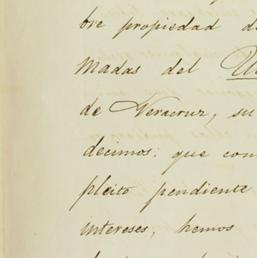 bre propiedad d
madas del
de Veracruz, su
decimos: que con
pleito pendiente
intereses, hemos